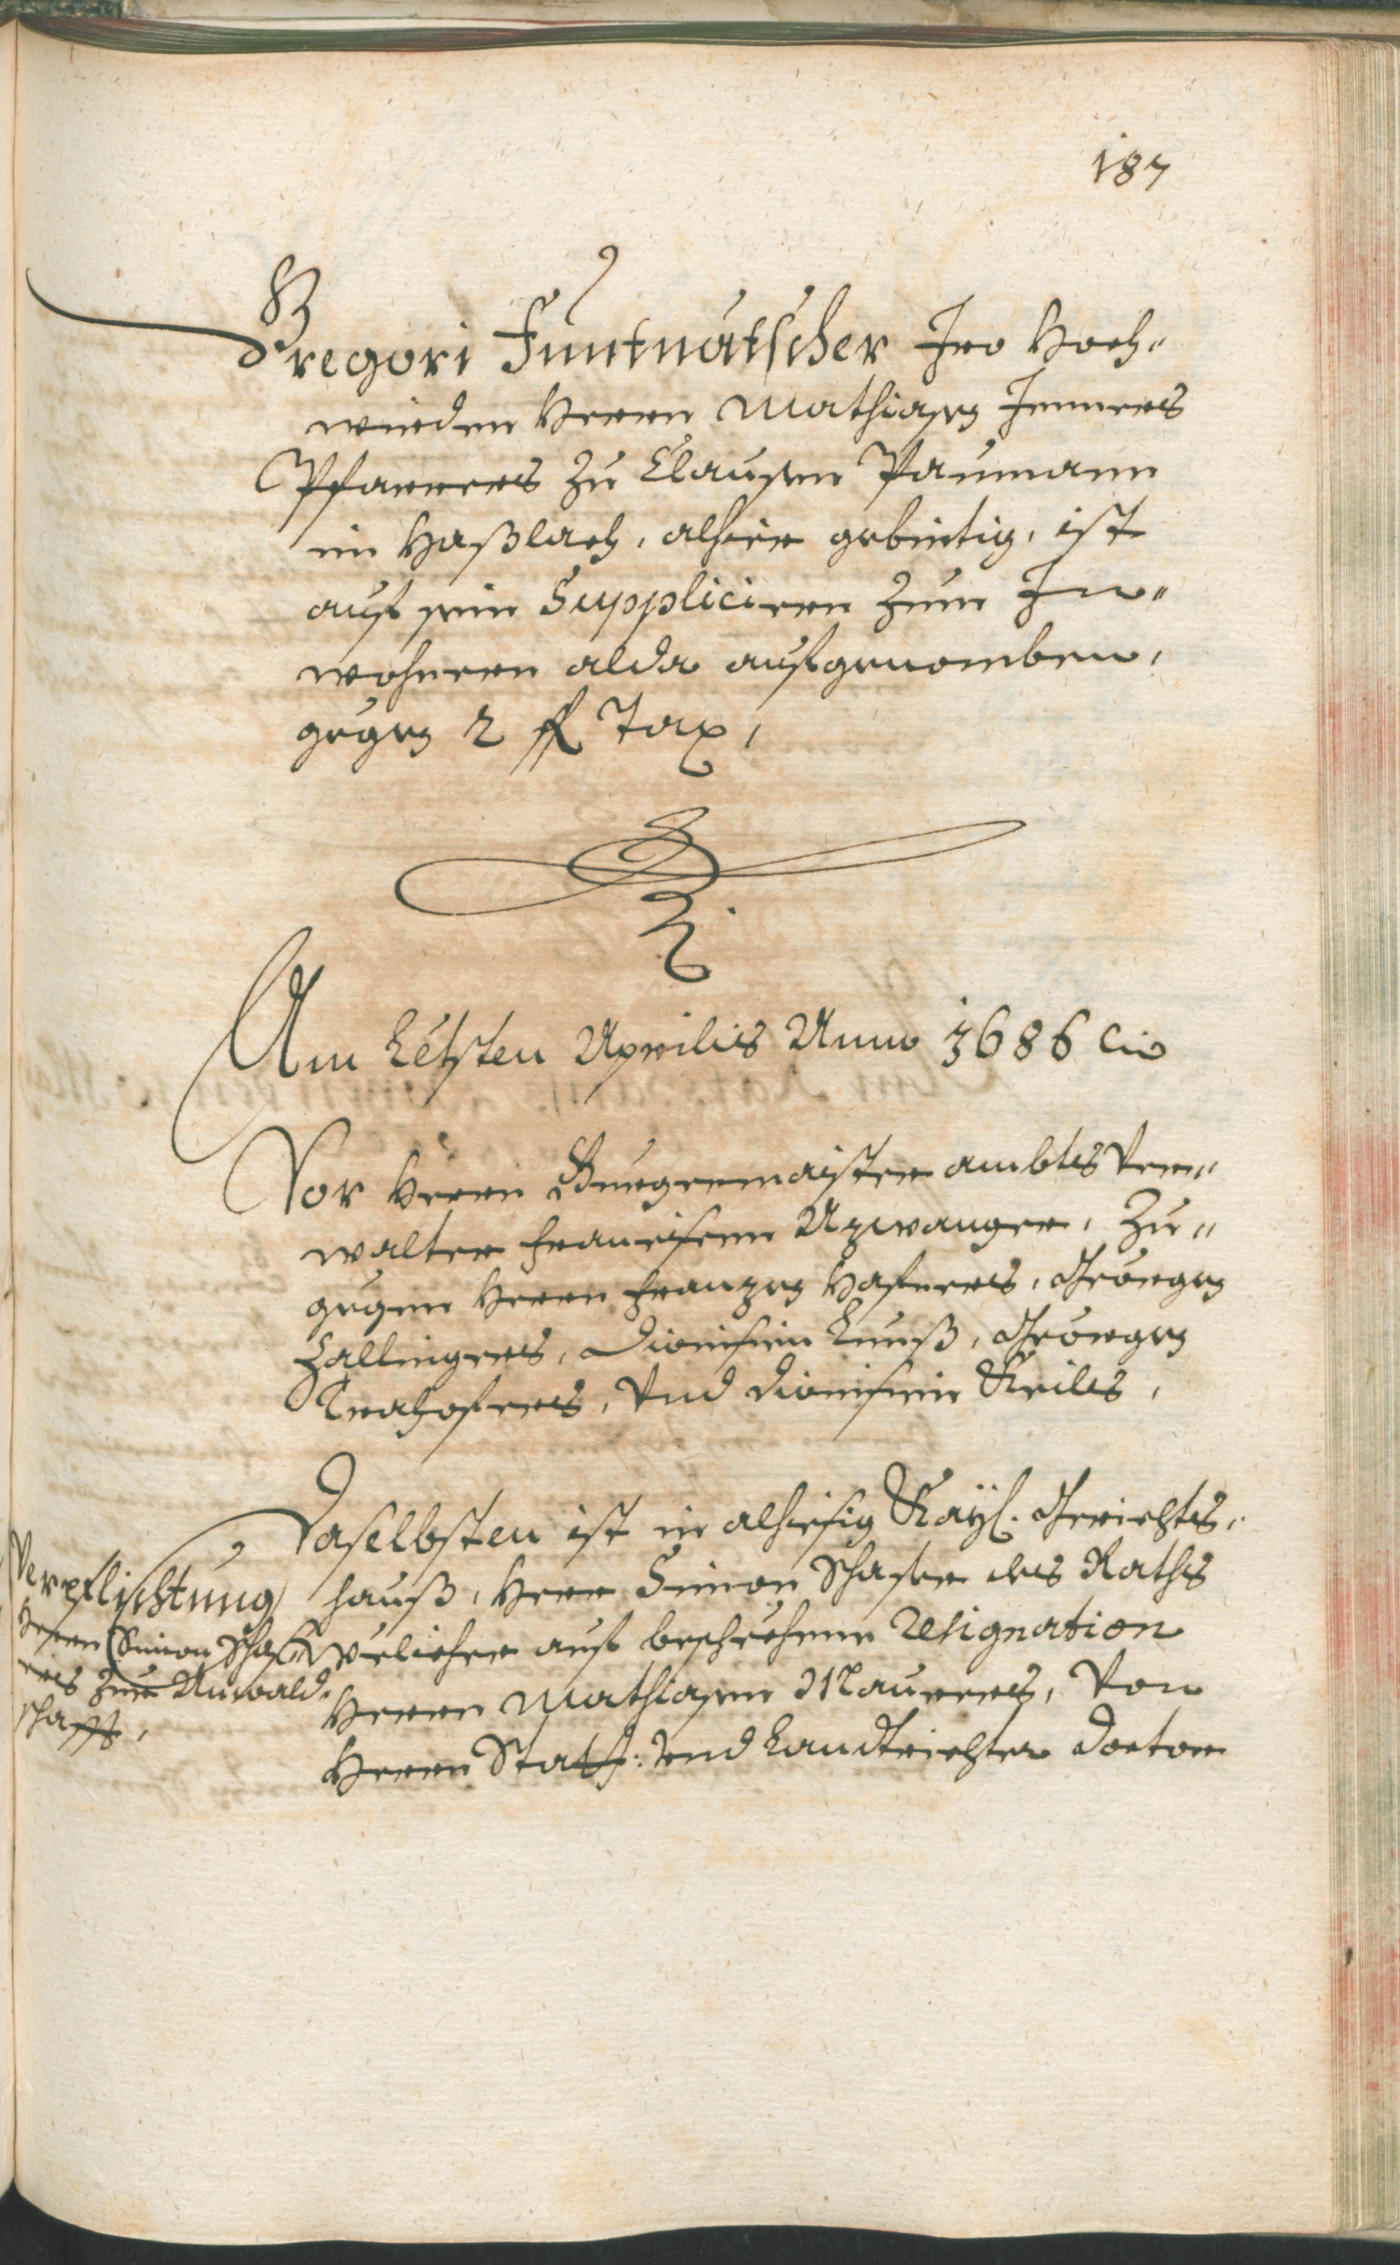 187
Gregori Funtnätscher Iro Hoch"
würden Herrn Mathiasen Jenners
Pfarrers zu Clausen Paumann
im Haßlach, alhier gebirtig, ist
auf sein Suppliciern zum In"
wohnern alda aufgenomben,
gegen 2 fl Tax,
Am Letsten Aprilis Anno 1686
Vor Herrn Burgermaister ambts Ver"
walter Francisen Azwanger, Zu"
gegen Herrn Franzen Hafners, Georgen
Zallingers, Dionisien Kunß, Georgen
Krahofers, Vnd Dionisien Keils,
Daselbsten ist in alhiesig Kayl. Gerichts,
hauß, Herr Simon Schafer des Raths
welicher auf beschechene Resignation
Herrn Mathiasen Maurers, Von
Herrn Statt: und Landtrichter Doctor
Verpflichtung
Herrn Simon Schaf
ers Zur Anwald,
schafft,